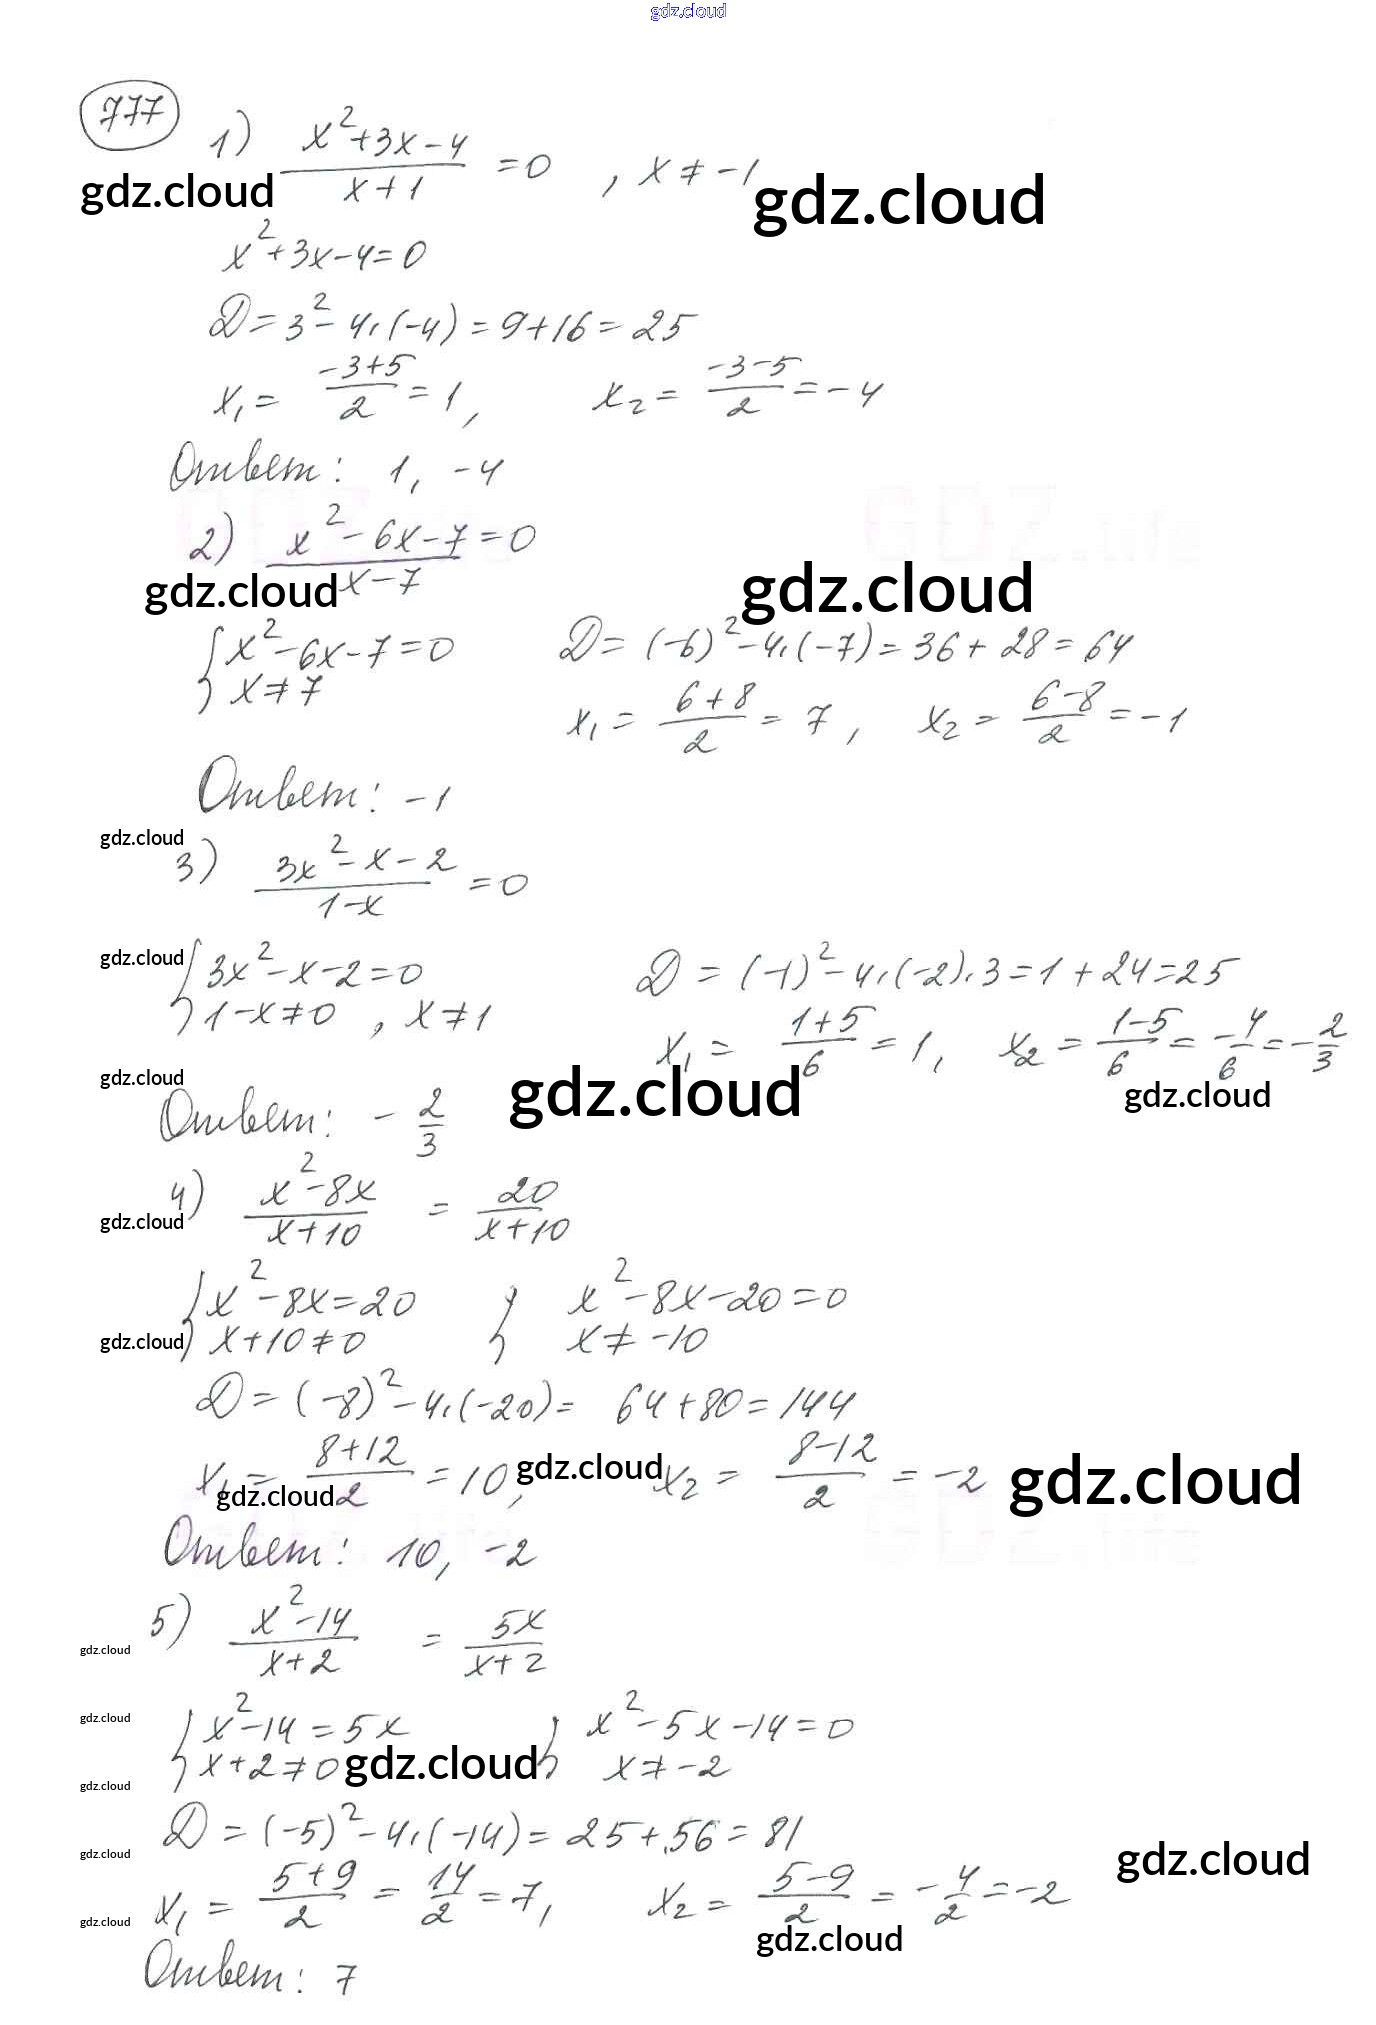 gdz.cloud
777
1) (x²+3x-4)/(x+1) = 0 , x ≠ -1
gdz.cloud gdz.cloud
x²+3x-4=0
D = 3² - 4·(-4) = 9+16 = 25
x₁ = (-3+5)/2 = 1, x₂ = (-3-5)/2 = -4
Ответ: 1, -4
GDZ.life GDZ.life
2) (x²-6x-7)/(x-7) = 0
gdz.cloud gdz.cloud
{ x²-6x-7=0 D = (-6)² - 4·(-7) = 36+28 = 64
x ≠ 7 x₁ = (6+8)/2 = 7, x₂ = (6-8)/2 = -1
Ответ: -1
gdz.cloud
3) (3x²-x-2)/(1-x) = 0
gdz.cloud
{ 3x²-x-2=0 D = (-1)² - 4·(-2)·3 = 1+24=25
1-x≠0 , x≠1 x₁ = (1+5)/6 = 1, x₂ = (1-5)/6 = -4/6 = -2/3
gdz.cloud gdz.cloud gdz.cloud
Ответ: -2/3
4) (x²-8x)/(x+10) = 20/(x+10)
gdz.cloud
{ x²-8x=20 { x²-8x-20=0
gdz.cloud x+10≠0 x≠-10
D = (-8)² - 4·(-20) = 64+80 = 144
x₁ = (8+12)/2 = 10, x₂ = (8-12)/2 = -2
gdz.cloud gdz.cloud gdz.cloud
GDZ.life GDZ.life
Ответ: 10, -2
5) (x²-14)/(x+2) = 5x/(x+2)
gdz.cloud
gdz.cloud
{ x²-14=5x { x²-5x-14=0
x+2≠0 gdz.cloud x≠-2
gdz.cloud
D = (-5)² - 4·(-14) = 25+56 = 81
gdz.cloud gdz.cloud
x₁ = (5+9)/2 = 14/2 = 7, x₂ = (5-9)/2 = -4/2 = -2
gdz.cloud gdz.cloud
Ответ: 7